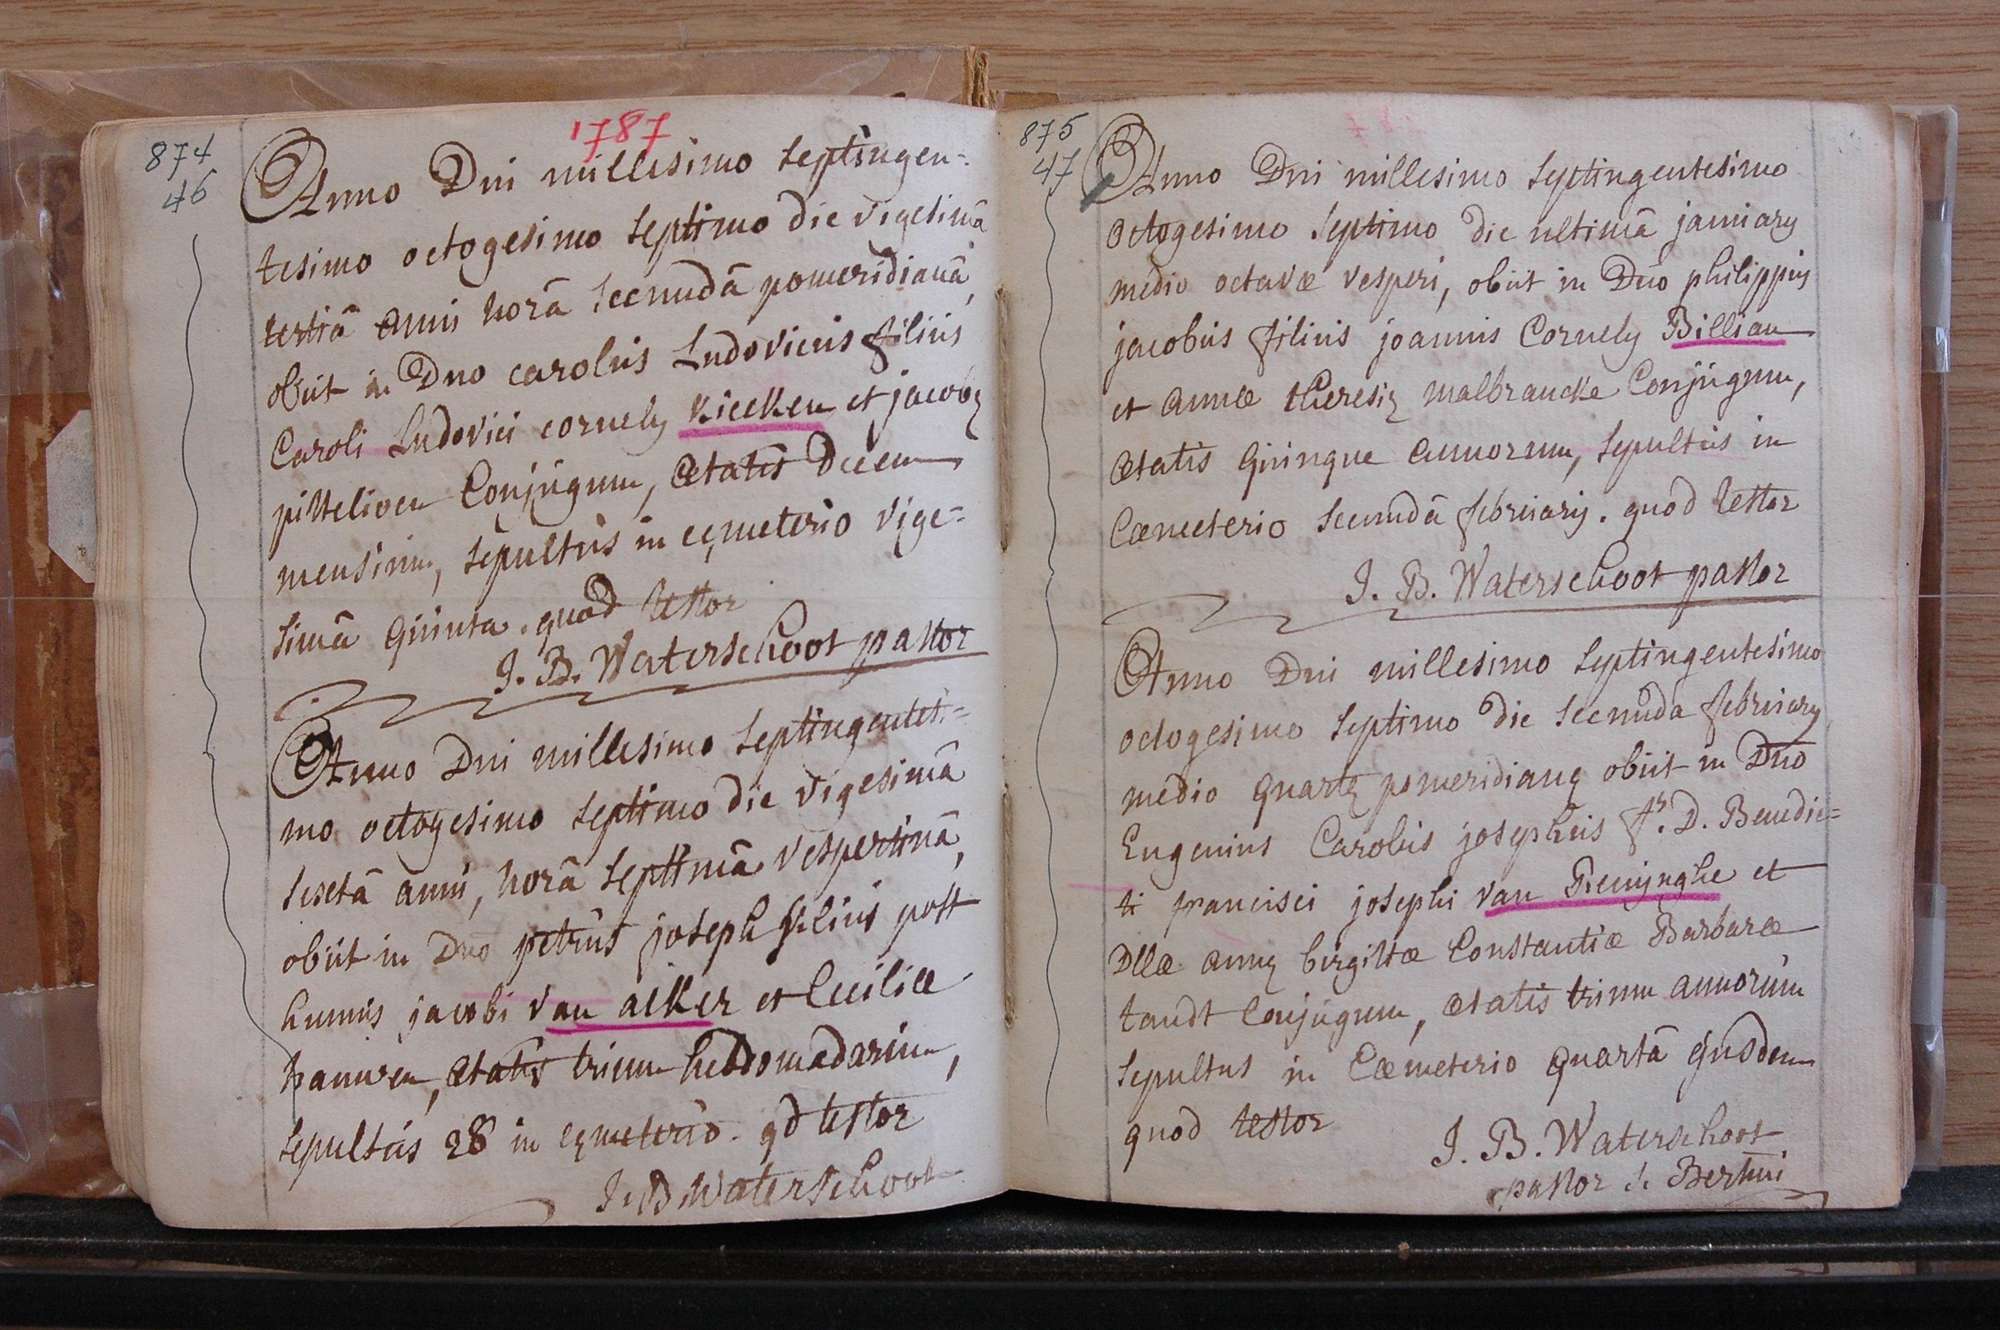 1787
874
46
Anno Dni millesimo septingen=
tesimo octogesimo septimo die vigesimâ
tertiâ anni horâ secundâ pomeridianâ,
obiit in Dno carolus Ludovicus filius
Caroli Ludovici cornely Kiecken et jacobę
pittelioen Conjugum, ætatis decem
mensium, sepultus in cęmeterio vige=
simâ quinta. quod testor
J. B. Waterschoot pastor
Anno Dni millesimo septingentesi=
mo octogesimo septimo die vigesimâ
sextâ anni, horâ septimâ vespertinâ,
obiit in Dno petrus joseph filius post
humus jacobi van acker et Ceciliæ
hauwen, ætatis trium hebdomadarum,
sepultus 28 in cęmeterio. qd testor
J. B. Waterschoot
875
47
Anno Dni millesimo septingentesimo
octogesimo septimo die ultimâ januarij
medio octavæ vesperi, obiit in Dno philippus
jacobus filius joannis Cornely Billiau
et annæ theresię malbrancke Conjugum,
ætatis quinque annorum, sepultus in
Cæmeterio secundâ februarij. quod testor
J. B. Waterschoot pastor
Anno Dni millesimo septingentesimo
octogesimo septimo die secunda februarij
medio quartę pomeridianę obiit in Dno
Eugenius Carolus josephus fs. D. Benedic=
ti francisci josephi van Renijnghe et
Dllæ annę birgittæ Constantiæ Barbaræ
tandt Conjugum, ætatis trium annorum
sepultus in Cæmeterio quartâ ejusdem
quod testor
J. B. Waterschoot
pastor S. Bertini